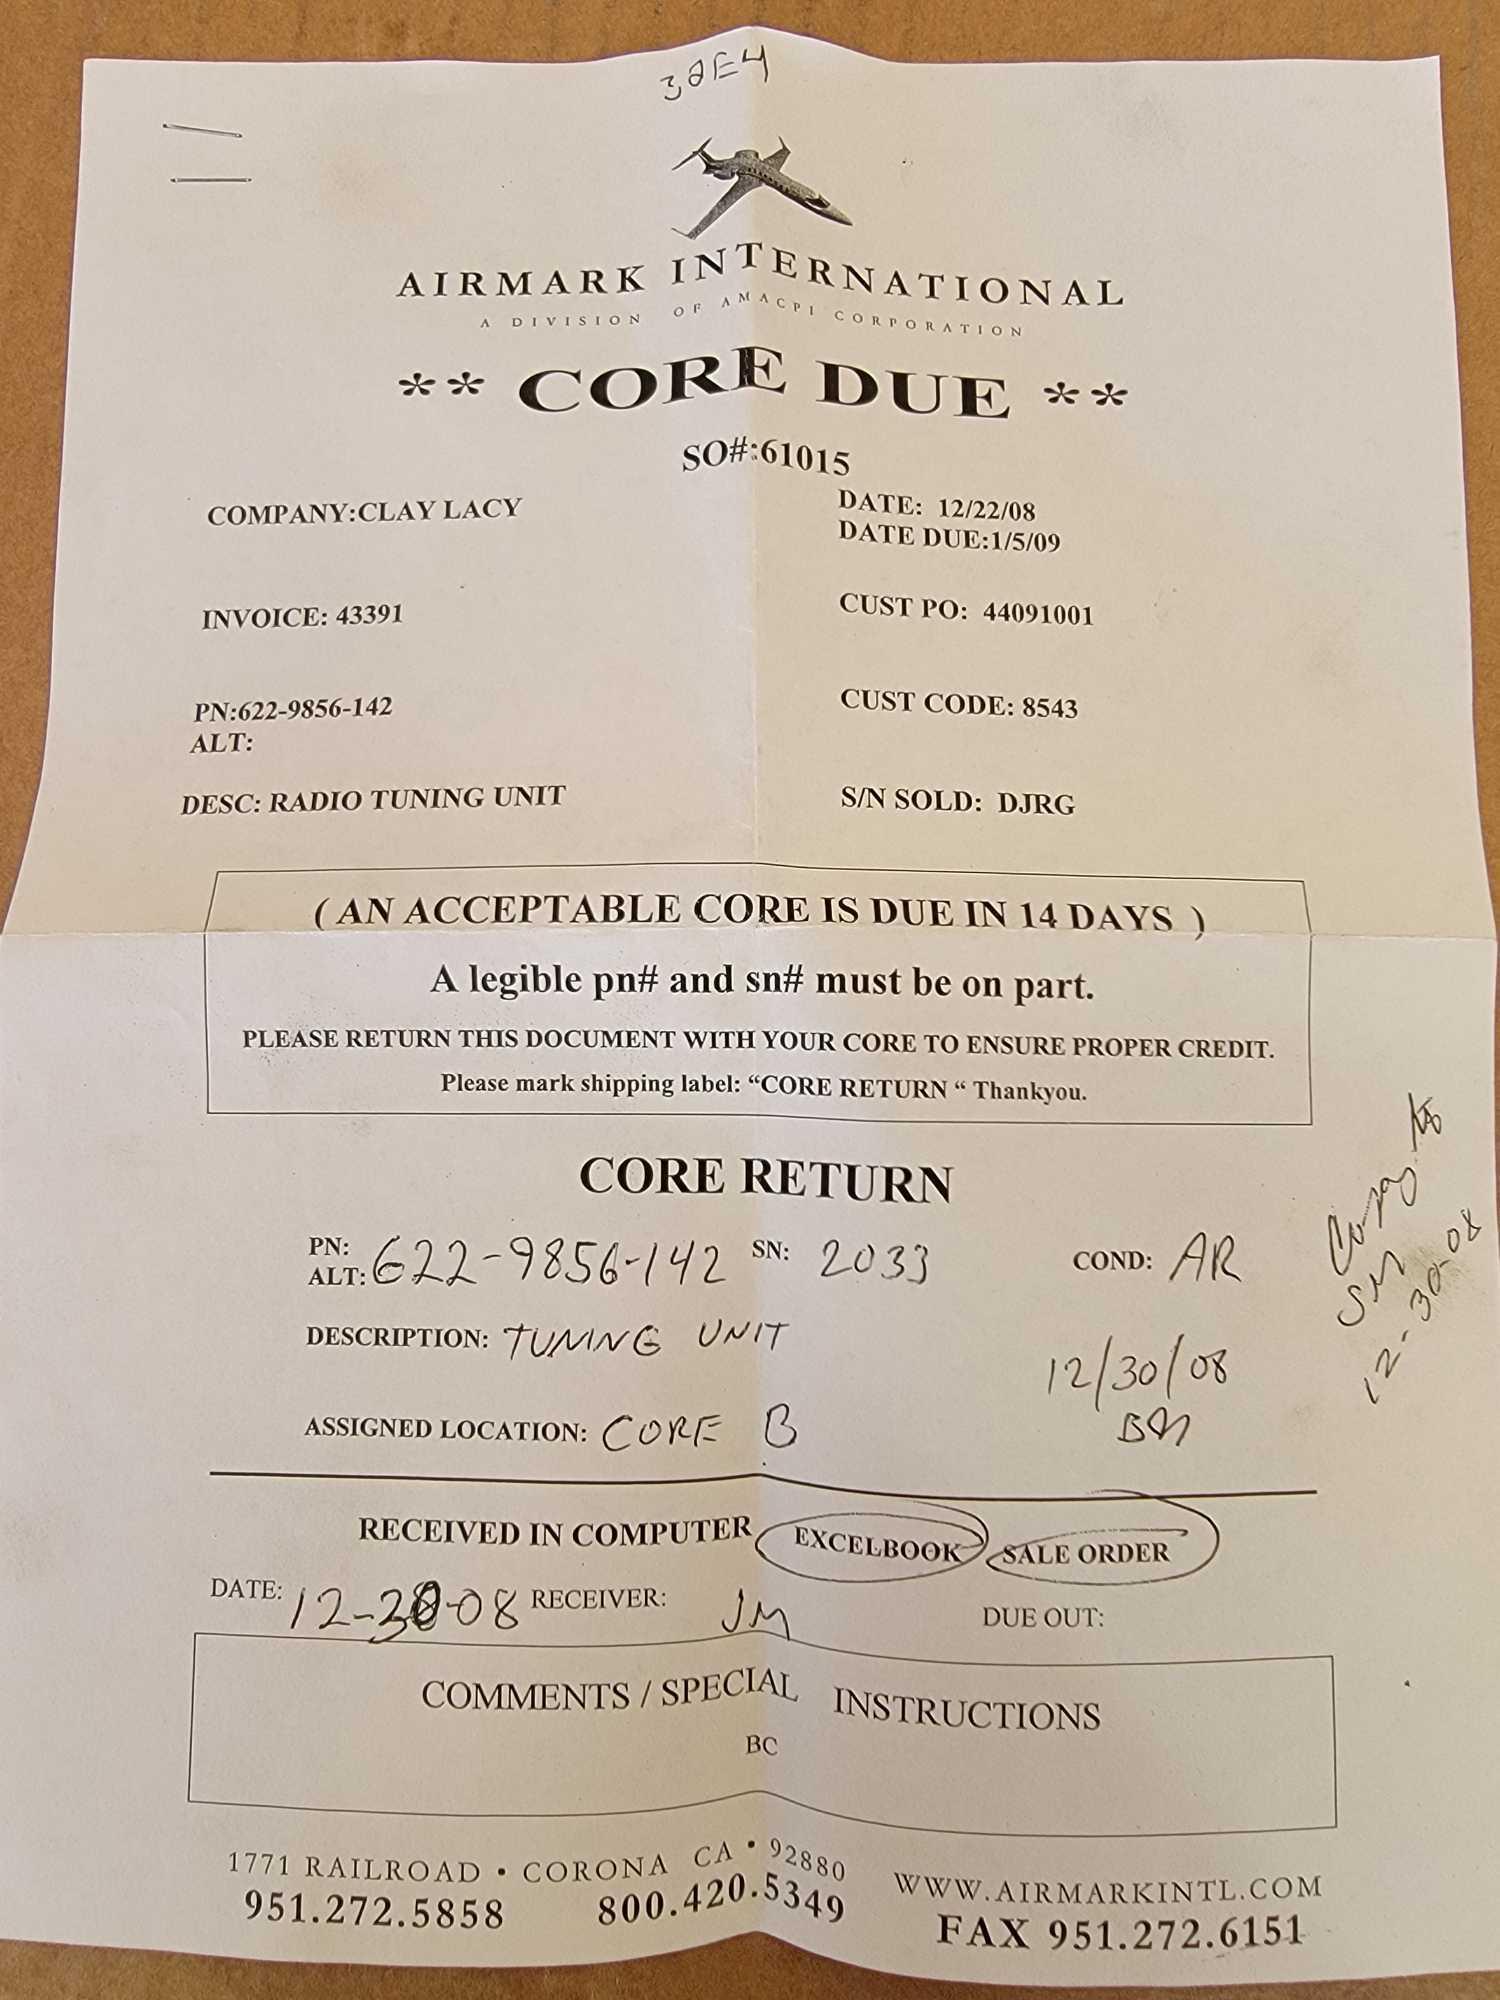 32E4
AIRMARK INTERNATIONAL
A DIVISION OF AMACPI CORPORATION
** CORE DUE **
SO#:61015
COMPANY:CLAY LACY
DATE: 12/22/08
DATE DUE:1/5/09
INVOICE: 43391
CUST PO: 44091001
PN:622-9856-142
ALT:
CUST CODE: 8543
DESC: RADIO TUNING UNIT
S/N SOLD: DJRG
( AN ACCEPTABLE CORE IS DUE IN 14 DAYS )
A legible pn# and sn# must be on part.
PLEASE RETURN THIS DOCUMENT WITH YOUR CORE TO ENSURE PROPER CREDIT.
Please mark shipping label: “CORE RETURN “ Thankyou.
CORE RETURN
PN:
ALT: 622-9856-142 SN: 2033 COND: AR
DESCRIPTION: TUNING UNIT
12/30/08
ASSIGNED LOCATION: CORE B
BM
12-30-08
RECEIVED IN COMPUTER EXCELBOOK SALE ORDER
DATE: 12-30-08 RECEIVER: JM DUE OUT:
COMMENTS / SPECIAL INSTRUCTIONS
BC
1771 RAILROAD • CORONA CA • 92880
951.272.5858 800.420.5349
WWW.AIRMARKINTL.COM
FAX 951.272.6151